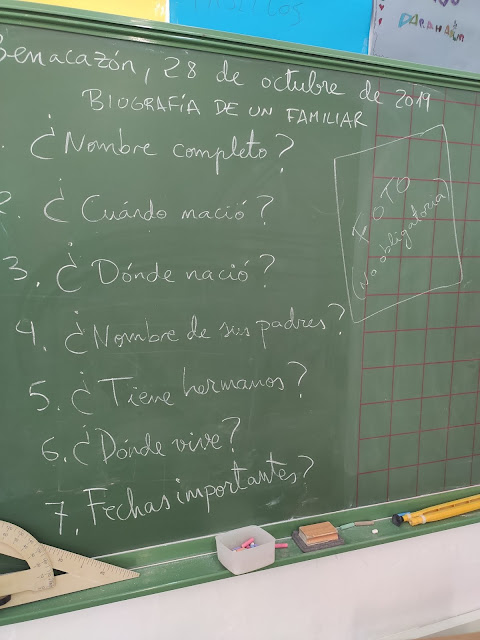 Benacazón, 28 de octubre de 2019
BIOGRAFÍA DE UN FAMILIAR
. ¿Nombre completo?
2. ¿Cuándo nació?
3. ¿Dónde nació?
4. ¿Nombre de sus padres?
5. ¿Tiene hermanos?
6. ¿Dónde vive?
7. Fechas importantes?
FOTO
(No obligatoria)